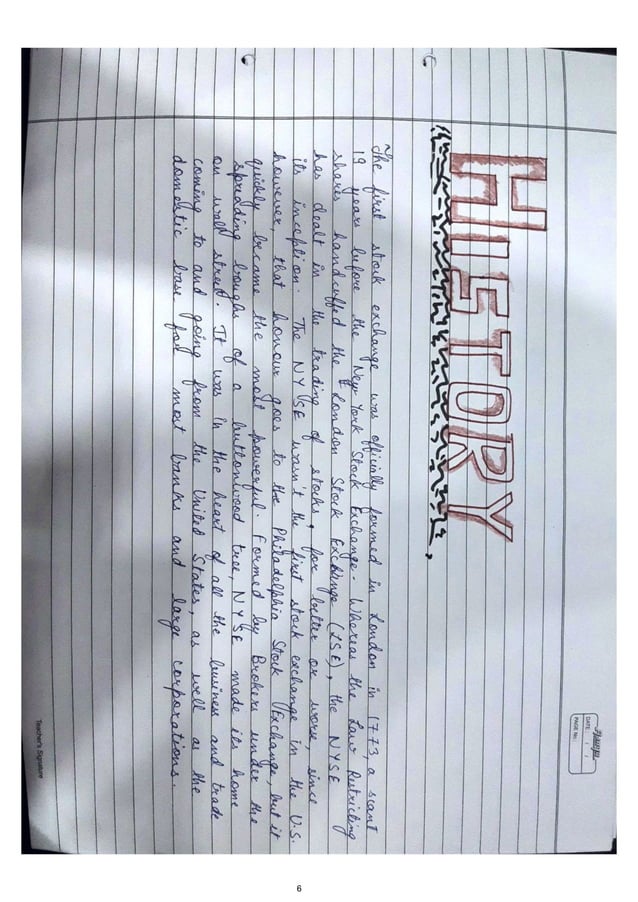 DATE: / /
PAGE No.:
HISTORY
The first stock exchange was officially formed in London in 1773, a scant
19 years before the New York Stock Exchange. Whereas the Law Restricting
shares handcuffed the London Stock Exchange (LSE), the NYSE
has dealt in the trading of stocks, for better or worse since
its inception. The NYSE wasn't the first stock exchange in the U.S.
however, that honour goes to the Philadelphia Stock Exchange, but it
quickly became the most powerful. Formed by Brokers under the
spreading boughs of a buttonwood tree, NYSE made its home
on wall street. It was in the heart of all the business and trade
coming to and going from the United States, as well as the
domestic base for most banks and large corporations.
Teacher's Signature
6